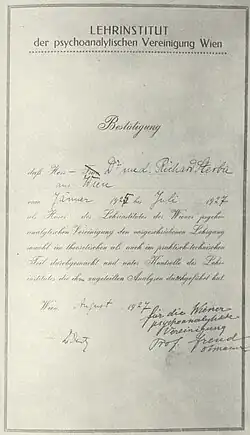 LEHRINSTITUT
der psychoanalytischen Vereinigung Wien
Bestätigung
daß Herr – Dr med. Richard Sterba
aus Wien
vom Jänner 192 bis Juli 1927
als Hörer des Lehrinstitutes der Wiener psycho-
analytischen Vereinigung den vorgeschriebenen Lehrgang
sowohl im theoretischen als auch im praktisch-technischen
Teil durchgemacht und unter Kontrolle des Lehr-
institutes die ihm zugeteilten Analysen durchgeführt hat.
Wien, August 1927
für die Wiener
psychoanalytische
Vereinigung
Prof. Freud
Obmann